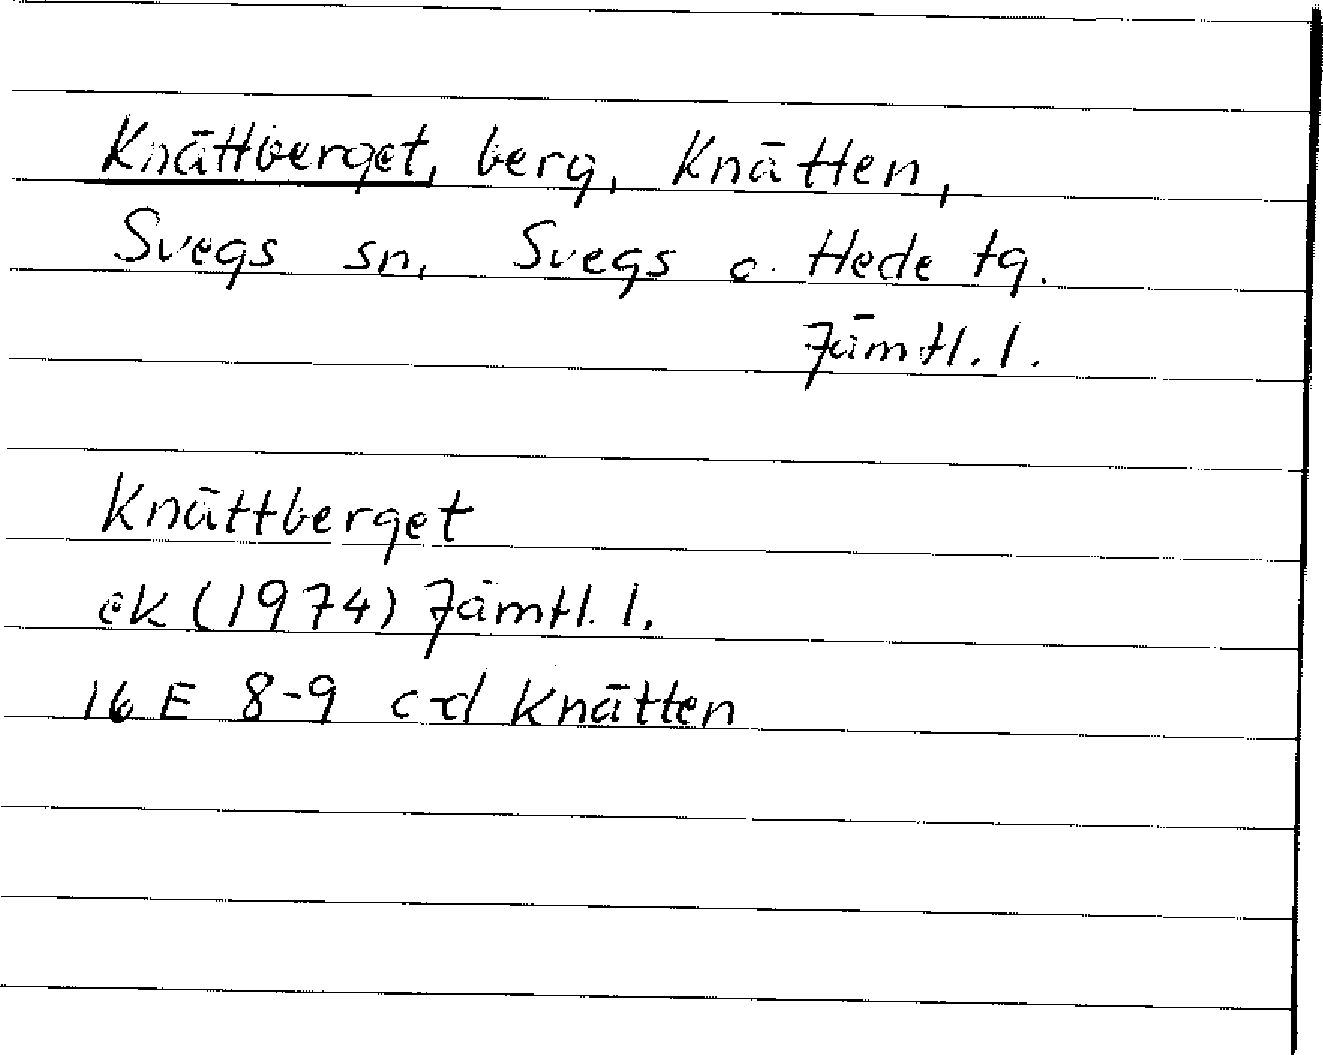 Knättberget, berg, Knätten,
Svegs sn, Svegs o. Hede tg.
Jämtl. l.
Knättberget
ek (1974) Jämtl. l.
16 E 8-9 c-d Knätten